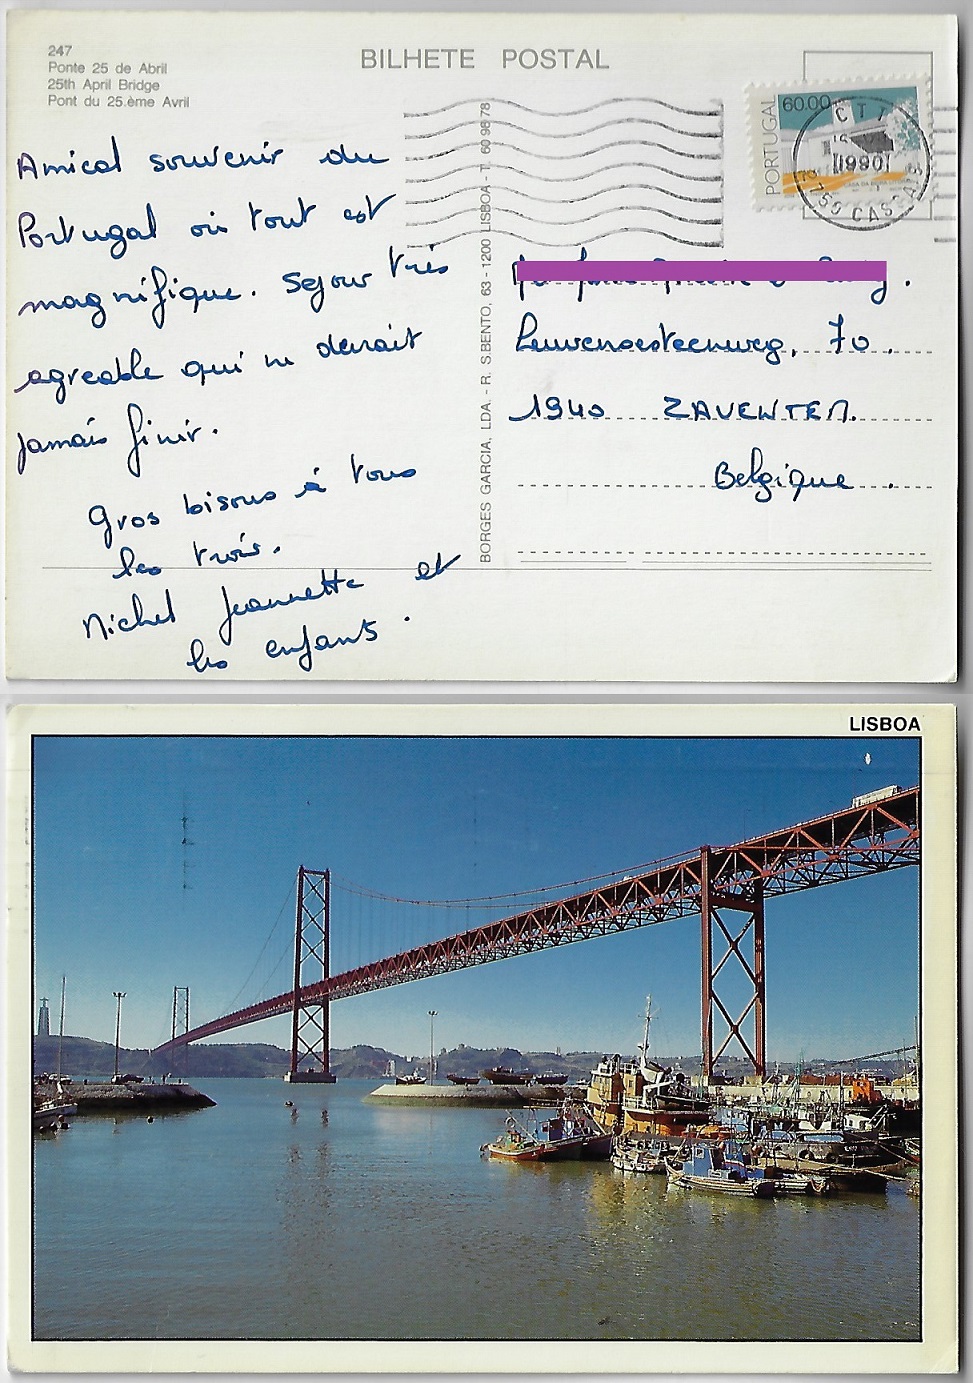 247
Ponte 25 de Abril
25th April Bridge
Pont du 25.ème Avril
BILHETE POSTAL
PORTUGAL
60.00
CTT
1990
2750 CASCAIS
Amical souvenir du
Portugal où tout est
magnifique. Sejour très
agreable qui ne devrait
jamais finir.
Gros bisous à tous
les trois.
Michel Jeannette et
les enfants.
BORGES GARCIA, LDA. - R. S.BENTO, 63 - 1200 LISBOA - T. 60 98 78
Leuvensesteenweg, 70.
1940 ZAVENTEM.
Belgique.
LISBOA